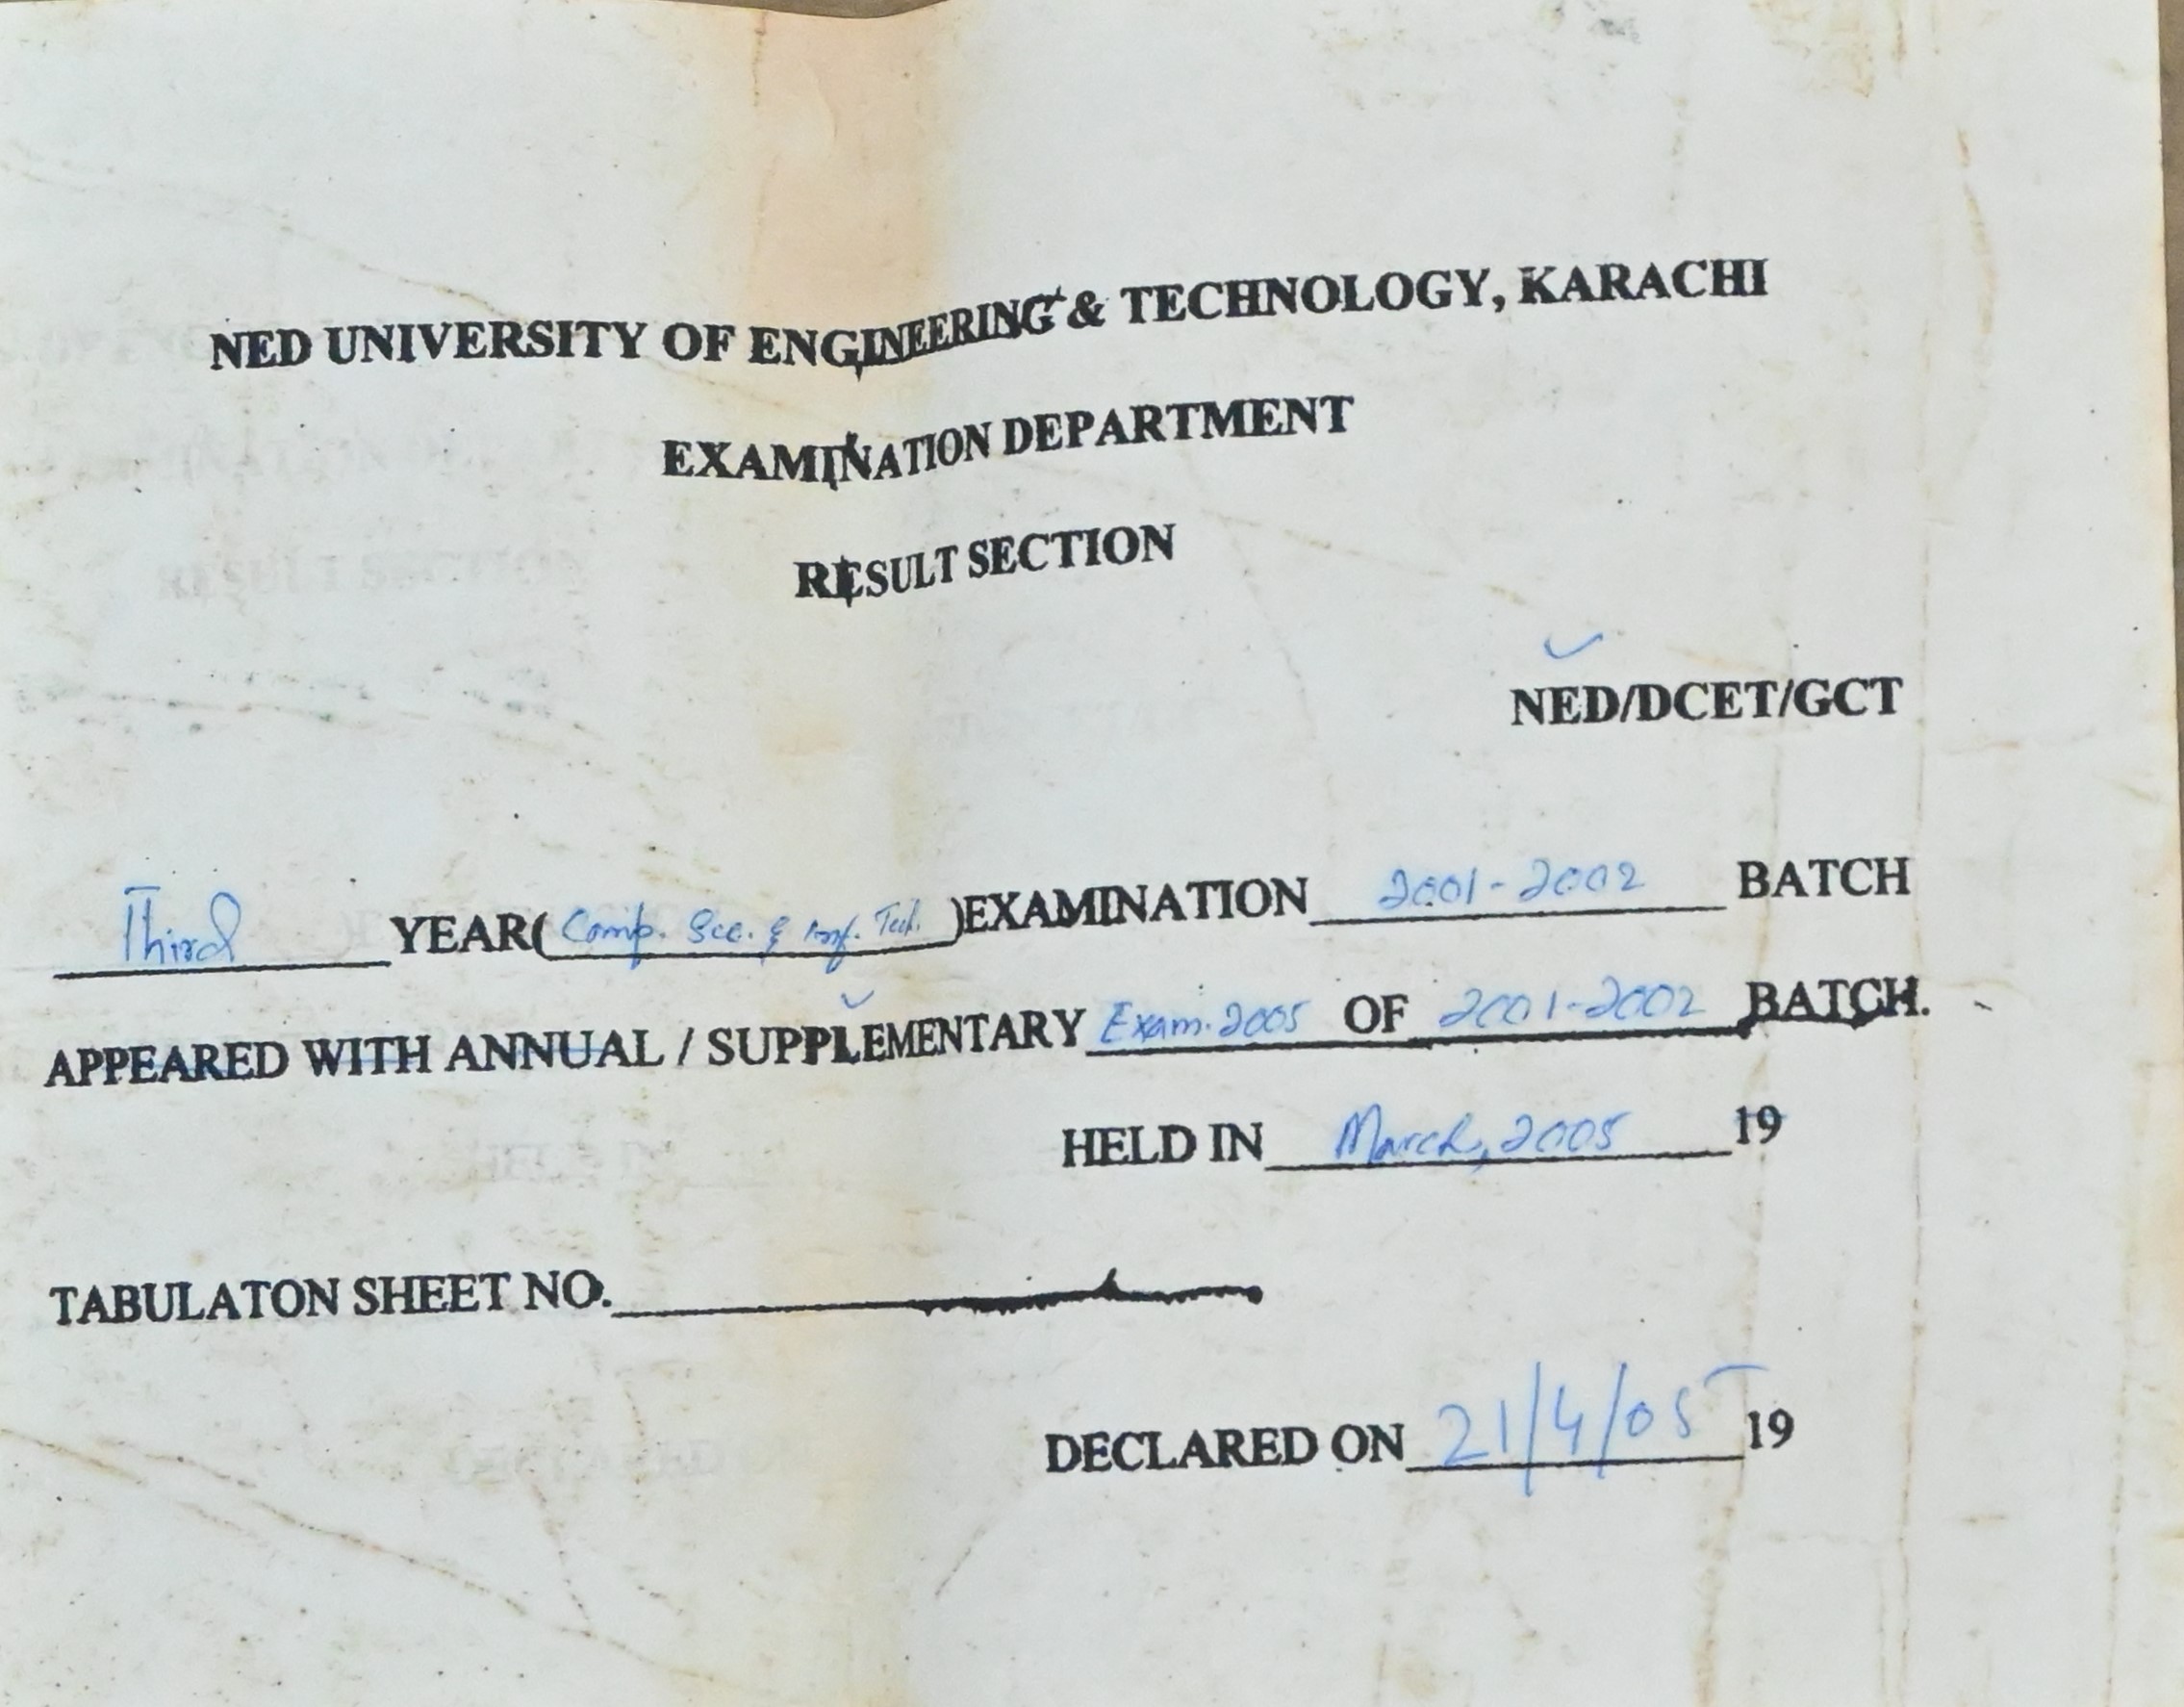 NED UNIVERSITY OF ENGINEERING & TECHNOLOGY, KARACHI
EXAMINATION DEPARTMENT
RESULT SECTION
NED/DCET/GCT
Third YEAR( Comp. Sce. & Inf. Tech. )EXAMINATION 2001-2002 BATCH
APPEARED WITH ANNUAL / SUPPLEMENTARY Exam. 2005 OF 2001-2002 BATCH.
HELD IN March, 2005 19
TABULATON SHEET NO.
DECLARED ON 21/4/05 19